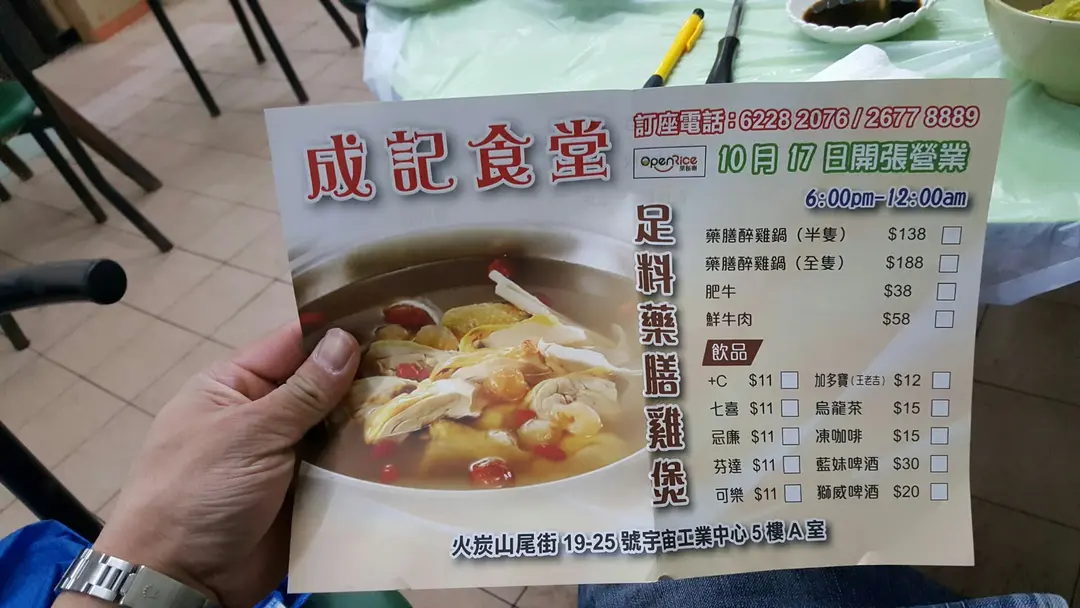 成記食堂
訂座電話：6228 2076 / 2677 8889
OpenRice
10月17日開張營業
6:00pm-12:00am
足料藥膳雞煲
藥膳醉雞鍋（半隻） $138
藥膳醉雞鍋（全隻） $188
肥牛 $38
鮮牛肉 $58
飲品
+C $11 加多寶（王老吉） $12
七喜 $11 烏龍茶 $15
忌廉 $11 凍咖啡 $15
芬達 $11 藍妹啤酒 $30
可樂 $11 獅威啤酒 $20
火炭山尾街 19-25 號宇宙工業中心 5 樓 A 室